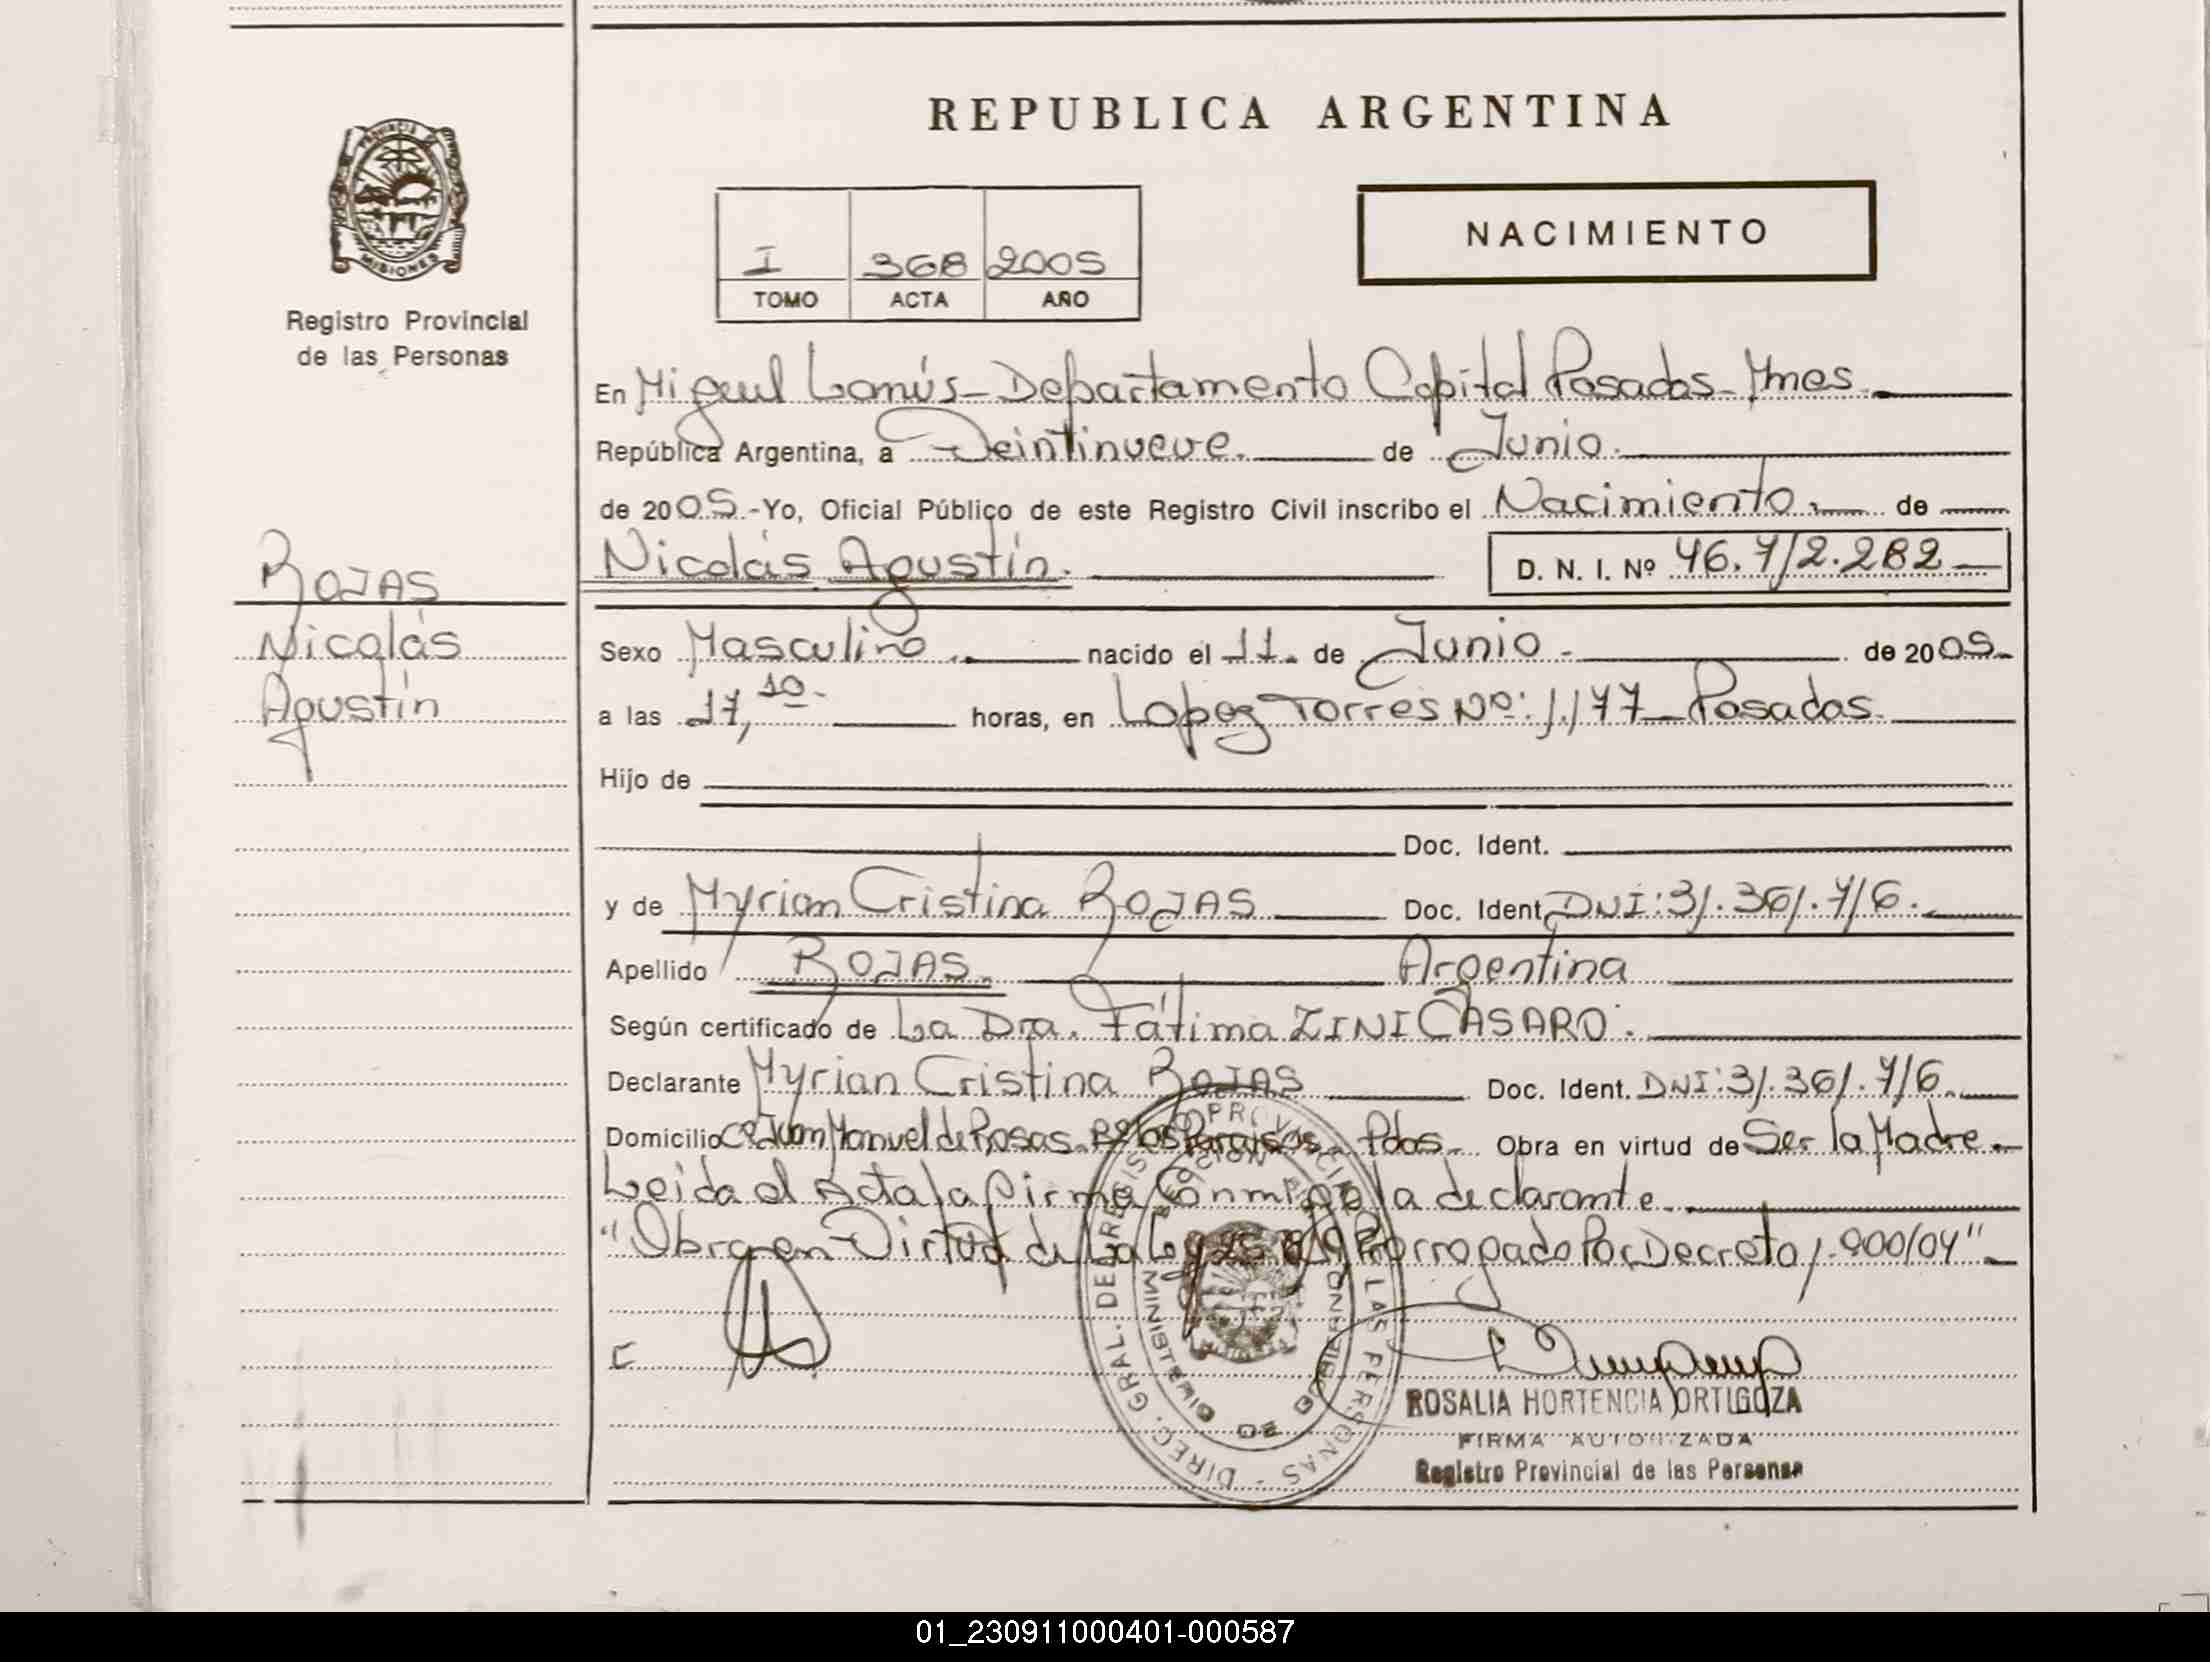 REPUBLICA ARGENTINA
PROVINCIA DE
MISIONES
Registro Provincial
de las Personas
I 368 2005
TOMO ACTA AÑO
NACIMIENTO
En Miguel Lanús - Departamento Capital Posadas - Mnes.
República Argentina, a Veintinueve. de Junio.
de 2005.-Yo, Oficial Público de este Registro Civil inscribo el Nacimiento. de
Nicolás Agustín. D. N. I. Nº 46.712.282
ROJAS
Nicolás
Agustín
Sexo Masculino. nacido el 11. de Junio - de 2005.
a las 17,10. horas, en Lopez Torres Nº: 1.177 - Posadas.
Hijo de
Doc. Ident.
y de Myrian Cristina ROJAS Doc. Ident. DNI: 31.361.716.
Apellido ROJAS. Argentina
Según certificado de La Dra. Fátima ZINI CASARO.
Declarante Myrian Cristina ROJAS Doc. Ident. DNI: 31.361.716.
Domicilio Juan Manuel de Rosas. Los Paraisos Pdas. Obra en virtud de Ser la Madre.
Leida el Acta la firma Conmigo la declarante.
"Obra en Virtud de La Ley Prorrogado Por Decreto 1.900/04"
DIREC. GRAL. DEL REGISTRO PROVINCIAL DE LAS PERSONAS
MINISTERIO DE GOBIERNO
ROSALIA HORTENCIA ORTIGOZA
FIRMA AUTORIZADA
Registro Provincial de las Personas
01_230911000401-000587